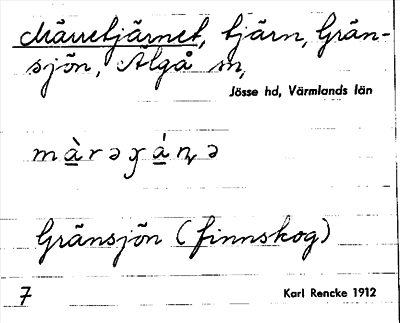 Märretjärnet, tjärn, Grän-
sjön, Älgå sn,
Jösse hd, Värmlands län
Gränsjön (finnskog)
7 Karl Rencke 1912